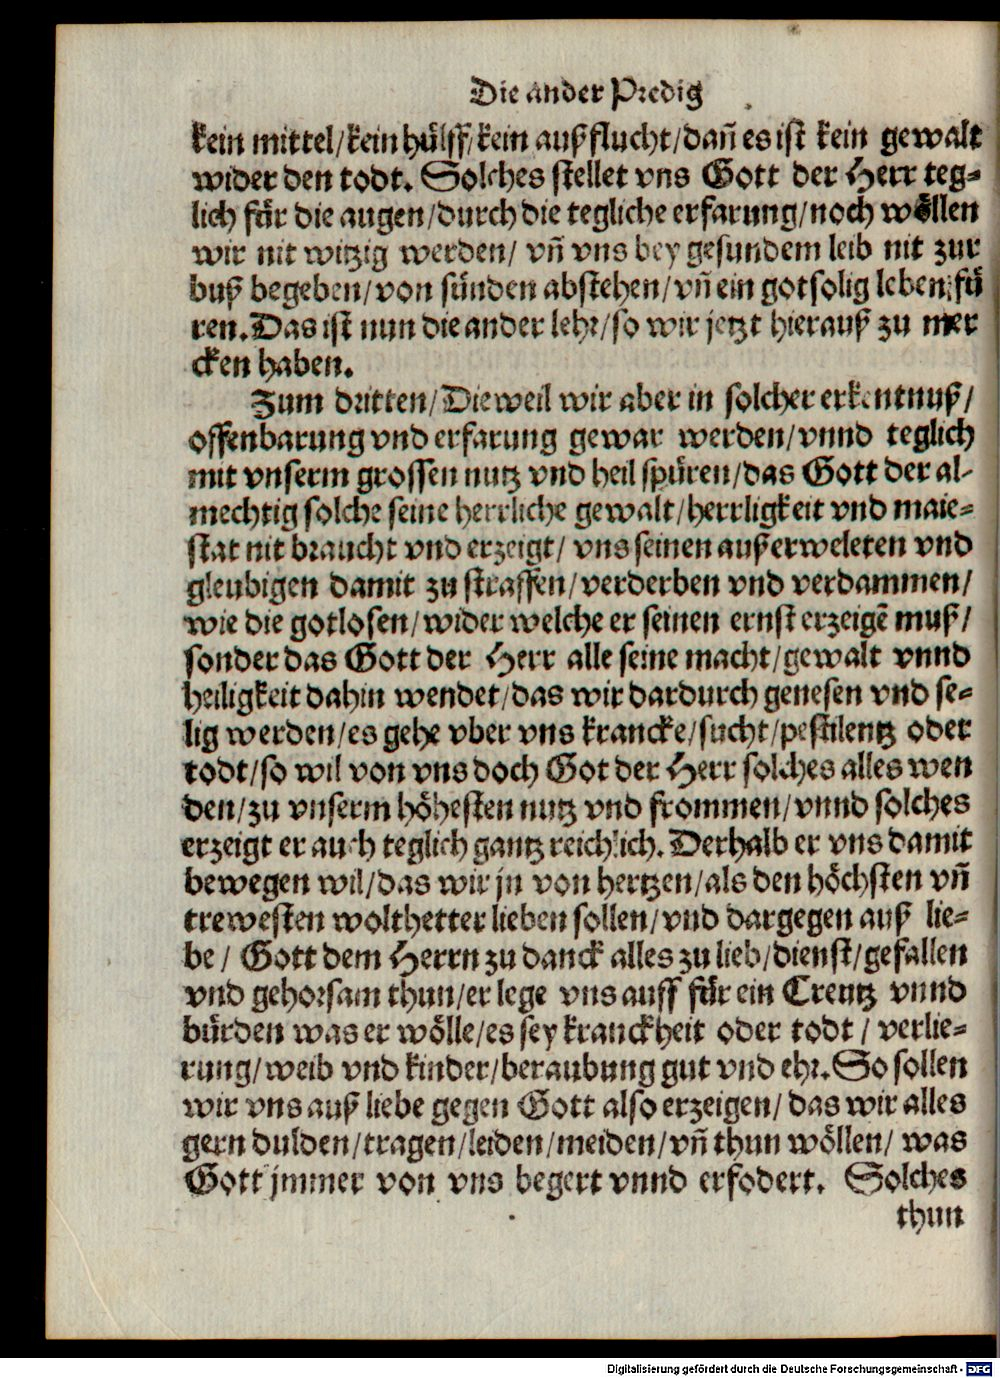 Die ander Predig
kein mittel/kein hülff/kein außflucht/dañ es ist kein gewalt
wider den todt. Solches stellet vns Gott der Herr teg-
lich für die augen/durch die tegliche erfarung/noch wöllen
wir nit witzig werden/ vñ vns bey gesundem leib nit zur
buß begeben/von sünden abstehen/vñ ein gotsolig leben fü
ren. Das ist nun die ander lehr/so wir jetzt hierauß zu mer
cken haben.
Zum dritten/Dieweil wir aber in solcher erkentnuß/
offenbarung vnd erfarung gewar werden/vnnd teglich
mit vnserm grossen nutz vnd heil spüren/das Gott der al-
mechtig solche seine herrliche gewalt/herrligkeit vnd maie-
stat nit braucht vnd erzeigt/ vns seinen außerweleten vnd
gleubigen damit zu straffen/verderben vnd verdammen/
wie die gotlosen/wider welche er seinen ernst erzeigẽ muß/
sonder das Gott der Herr alle seine macht/gewalt vnnd
heiligkeit dahin wendet/das wir dardurch genesen vnd se-
lig werden/es gehe vber vns krancke/sucht/pestilentz oder
todt/so wil von vns doch Got der Herr solches alles wen
den/zu vnserm höhesten nutz vnd frommen/vnnd solches
erzeigt er auch teglich gantz reichlich. Derhalb er vns damit
bewegen wil/das wir jn von hertzen/als den höchsten vñ
trewesten wolthetter lieben sollen/vnd dargegen auß lie-
be/ Gott dem Herrn zu danck alles zu lieb/dienst/gefallen
vnd gehorsam thun/er lege vns auff für ein Creutz vnnd
bürden was er wölle/es sey kranckheit oder todt/ verlie-
rung/weib vnd kinder/beraubung gut vnd ehr. So sollen
wir vns auß liebe gegen Gott also erzeigen/ das wir alles
gern dulden/tragen/leiden/meiden/vñ thun wöllen/ was
Gott jmmer von vns begert vnnd erfodert. Solches
thun
Digitalisierung gefördert durch die Deutsche Forschungsgemeinschaft - DFG